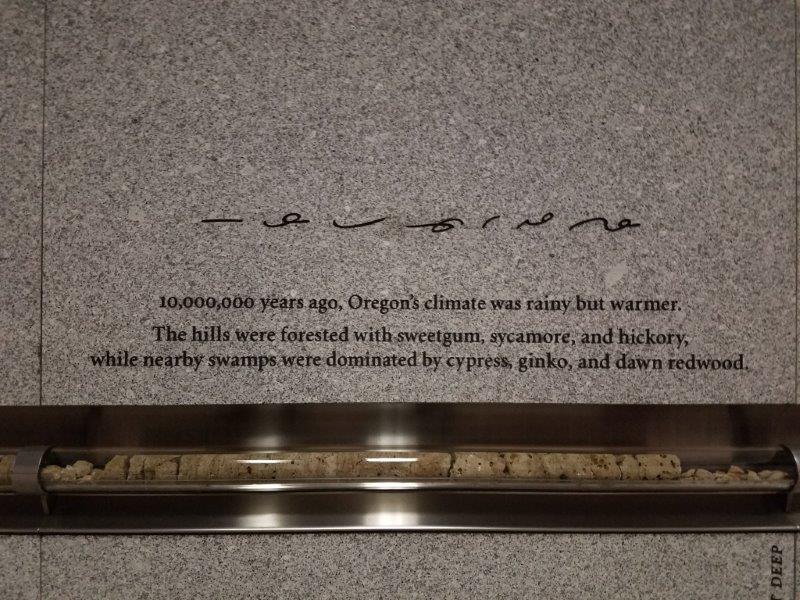 10,000,000 years ago, Oregon's climate was rainy but warmer.
The hills were forested with sweetgum, sycamore, and hickory,
while nearby swamps were dominated by cypress, ginko, and dawn redwood.
DEEP